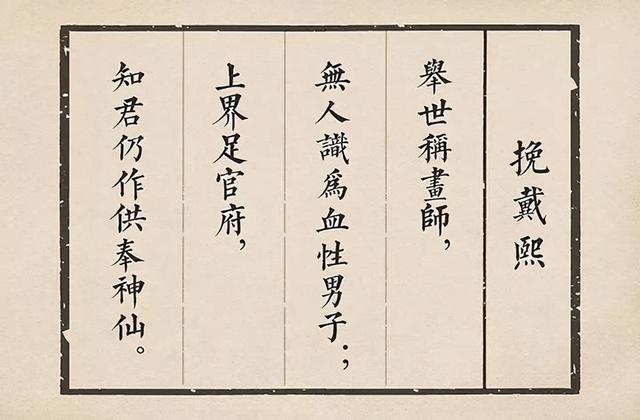 挽戴熙
舉世稱畫師，
無人識爲血性男子；
上界足官府，
知君仍作供奉神仙。